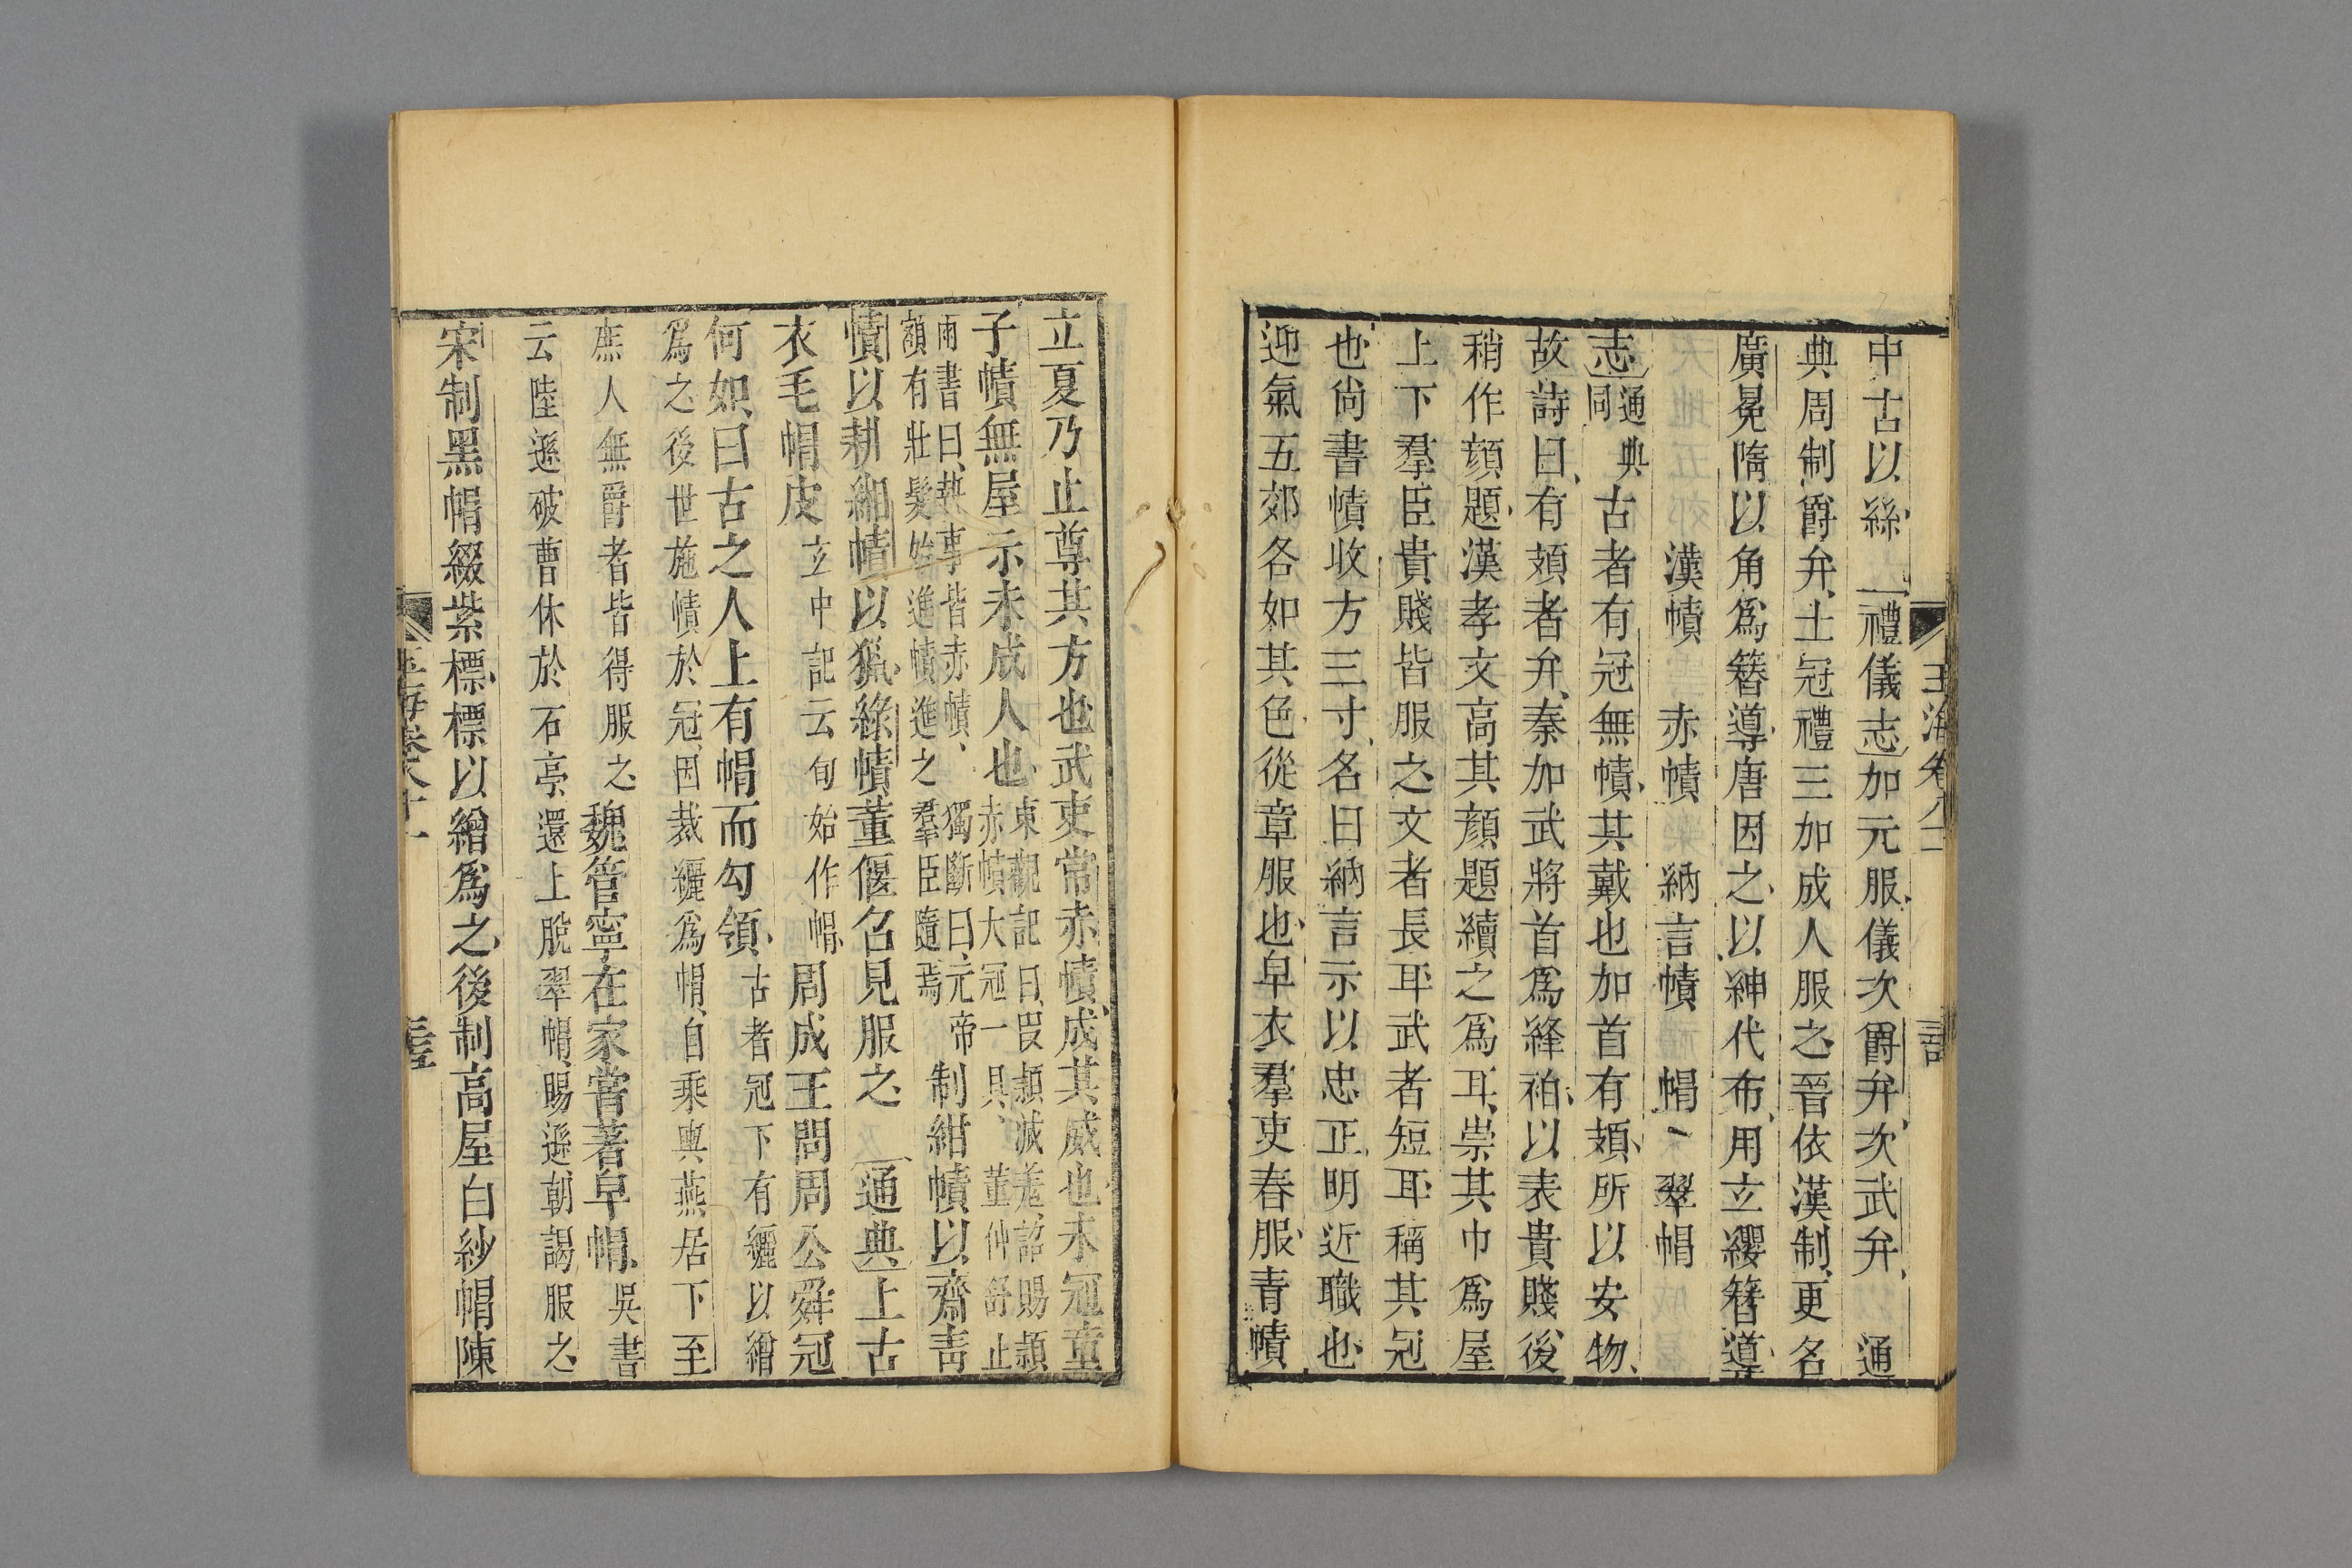 中古以絲禮儀志加元服儀次爵弁次武弁通
典周制爵弁士冠禮三加成人服之晉依漢制更名
廣冕隋以角爲簪導唐因之以紳代布用立纓簪導
漢幘 赤幘 納言幘 帽 翠帽
志通典同古者有冠無幘其戴也加首有頍所以安物
故詩曰有頍者弁秦加武將首爲絳袙以表貴賤後
稍作顔題漢孝文高其顔題續之爲耳崇其巾爲屋
上下羣臣貴賤皆服之文者長耳武者短耳稱其冠
也尚書幘收方三寸名曰納言示以忠正明近職也
迎氣五郊各如其色從章服也皁衣羣吏春服青幘
立夏乃止尊其方也武吏常赤幘成其威也未冠童
子幘無屋示未成人也東觀記曰段熲滅羌詔賜熲
赤幘大冠一具董仲舒止
雨書曰執事皆赤幘獨斷曰元帝
額有壯髮始進幘進之羣臣隨焉制紺幘以齋青
幘以耕緗幘以獵綠幘董偃召見服之通典上古
衣毛帽皮立中記云旬始作帽周成王問周公舜冠
何如曰古之人上有帽而勾領古者冠下有纚以繒
爲之後世施幘於冠因裁纚爲帽自乘輿燕居下至
庶人無爵者皆得服之魏管寧在家嘗著皁帽吳書
云陸遜破曹休於石亭還上脫翠帽賜遜朝謁服之
宋制黑帽綴紫標標以繒爲之後制高屋白紗帽陳
玉海卷八十一